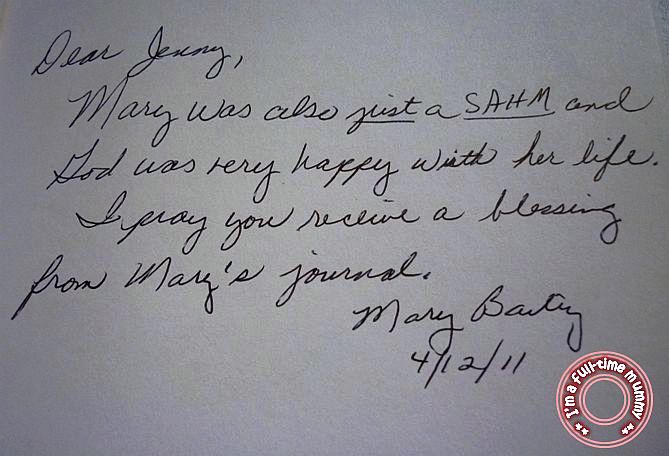 Dear Jenny,
Mary was also just a SAHM and
God was very happy with her life.
I pray you receive a blessing
from Mary's journal.
Mary
4/12/11
I'm a full-time mummy